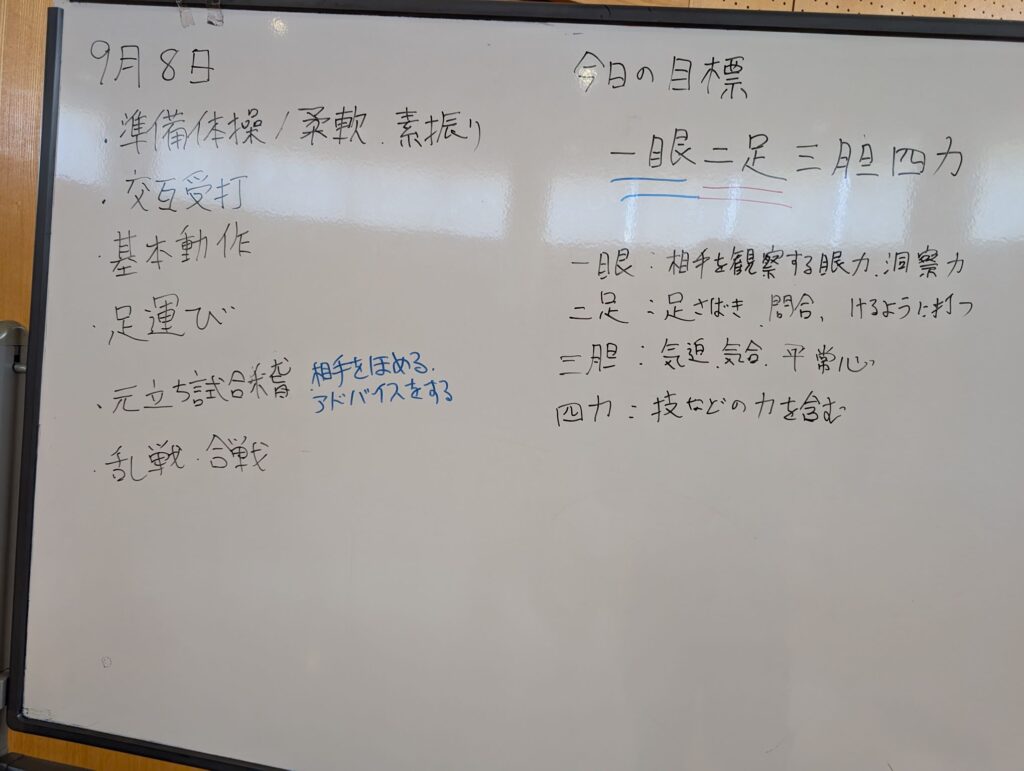 9月8日
・準備体操/柔軟.素振り
・交互受打
・基本動作
・足運び
・元立ち試合稽
相手をほめる.
アドバイスをする
・乱戦・合戦
今日の目標
一眼二足三胆四力
一眼：相手を観察する眼力、洞察力
二足：足さばき、間合、けるように打つ
三胆：気迫、気合、平常心
四力：技などの力を含む